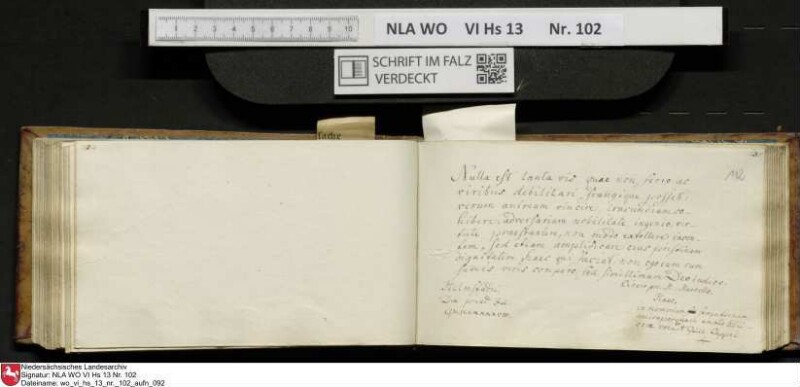 1 2 3 4 5 6 7 8 9 10
NLA WO VI Hs 13 Nr. 102
SCHRIFT IM FALZ
VERDECKT
102
Nulla est tanta vis, quae non ferro ac
viribus debilitari, frangique possit:
verum animum vincere, iracundiam co-
hibere, adversarium nobilitate, ingenio, vir-
tute praestantem, non modo extollere iacen-
tem, sed etiam amplificare eius pristinam
dignitatem, haec qui faciat, non ego eum cum
summis viris comparo, sed simillimum Deo iudico.
Cicero pr. M. Marcello.
Helmstadii
Haec,
Niedersächsisches Landesarchiv
Signatur: NLA WO VI Hs 13 Nr. 102
Dateiname: wo_vi_hs_13_nr._102_aufn_092